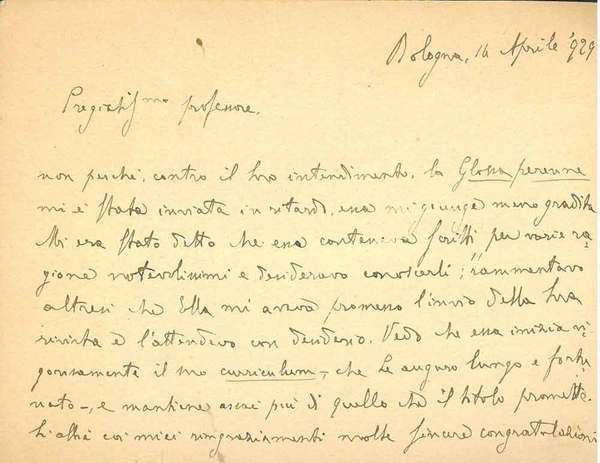 Bologna, 14 Aprile '929
Pregiatissmo professore,
non perchè, contro il Suo intendimento, la Glossa perenne
mi è stata inviata in ritardo, essa mi giunge meno gradita
Mi era stato detto che essa conteneva scritti per varie ra-
gione notevolissimi e desideravo conoscerli; rammentavo
altresì che Ella mi aveva promesso l'invio della Sua
rivista e l'attendevo con desiderio. Vedo che essa inizia vi-
gorosamente il suo curriculum -, che Le auguro lungo e fortu-
nato -, e mantiene assai più di quello che il titolo promette.
S'abbia coi miei ringraziamenti molte sincere congratulazioni